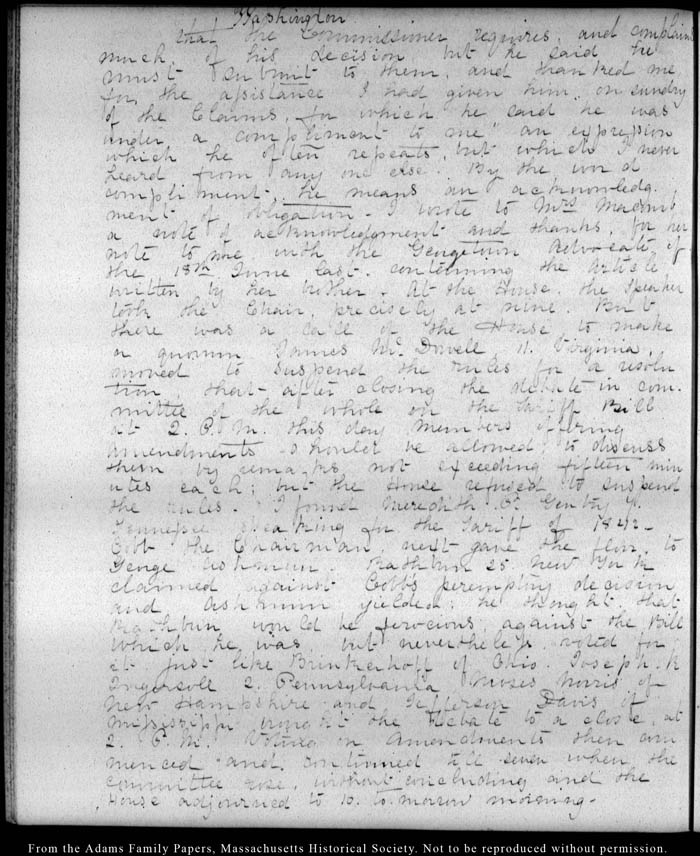 Washington
that the Commissioner requires, and complains
much of his decision, but he said he
must submit to them, and thanked me
for the assistance I had given him on sundry
of the Claims, for which he said he was
under a compliment to me" an expression
which he often repeats, but which I never
heard from any one else. By the word
compliment he means an acknowledg-
ment of obligation - I wrote to Mrs Macomb
a note of acknowledgment and thanks, for her
note to me with the Georgetown Advocate of
the 18th June last. containing the Article
written by her brother. At the House. the Speaker
took the Chair, precisely at nine. But
there was a call of the House to make
a quorum James McDowell, 11. Virginia,
moved to suspend the rules for a resolu
tion that after closing the debate in com-
mittee of the whole on the Tariff Bill
at 2. P.M. this day members offering
amendments should be allowed, to discuss
them by remarks not exceeding fifteen min
utes each; but the House refused to suspend
the rules. I found Meredith P. Gentry
Tennessee speaking for the Tariff of 1842-
Cobb the Chairman, next gave the floor, to
George Ashmun. Rathbun 25 New York
claimed against Cobb's perempting decision
and Ashmun yielded; he thought that
Rathbun would be ferocious against the Bill
which he was, but nevertheless voted for
it just like Brinkerhoff of Ohio. Joseph. R
Ingersoll 2. Pennsylvania Moses Norris of
New Hampshire and Jefferson Davis of
Mississippi brought the debate to a close, at
2. P.M. Voting on Amendments then com
menced and continued till seven when the
committee rose, without concluding and the
House adjourned to 10. to-morrow morning-
From the Adams Family Papers, Massachusetts Historical Society. Not to be reproduced without permission.